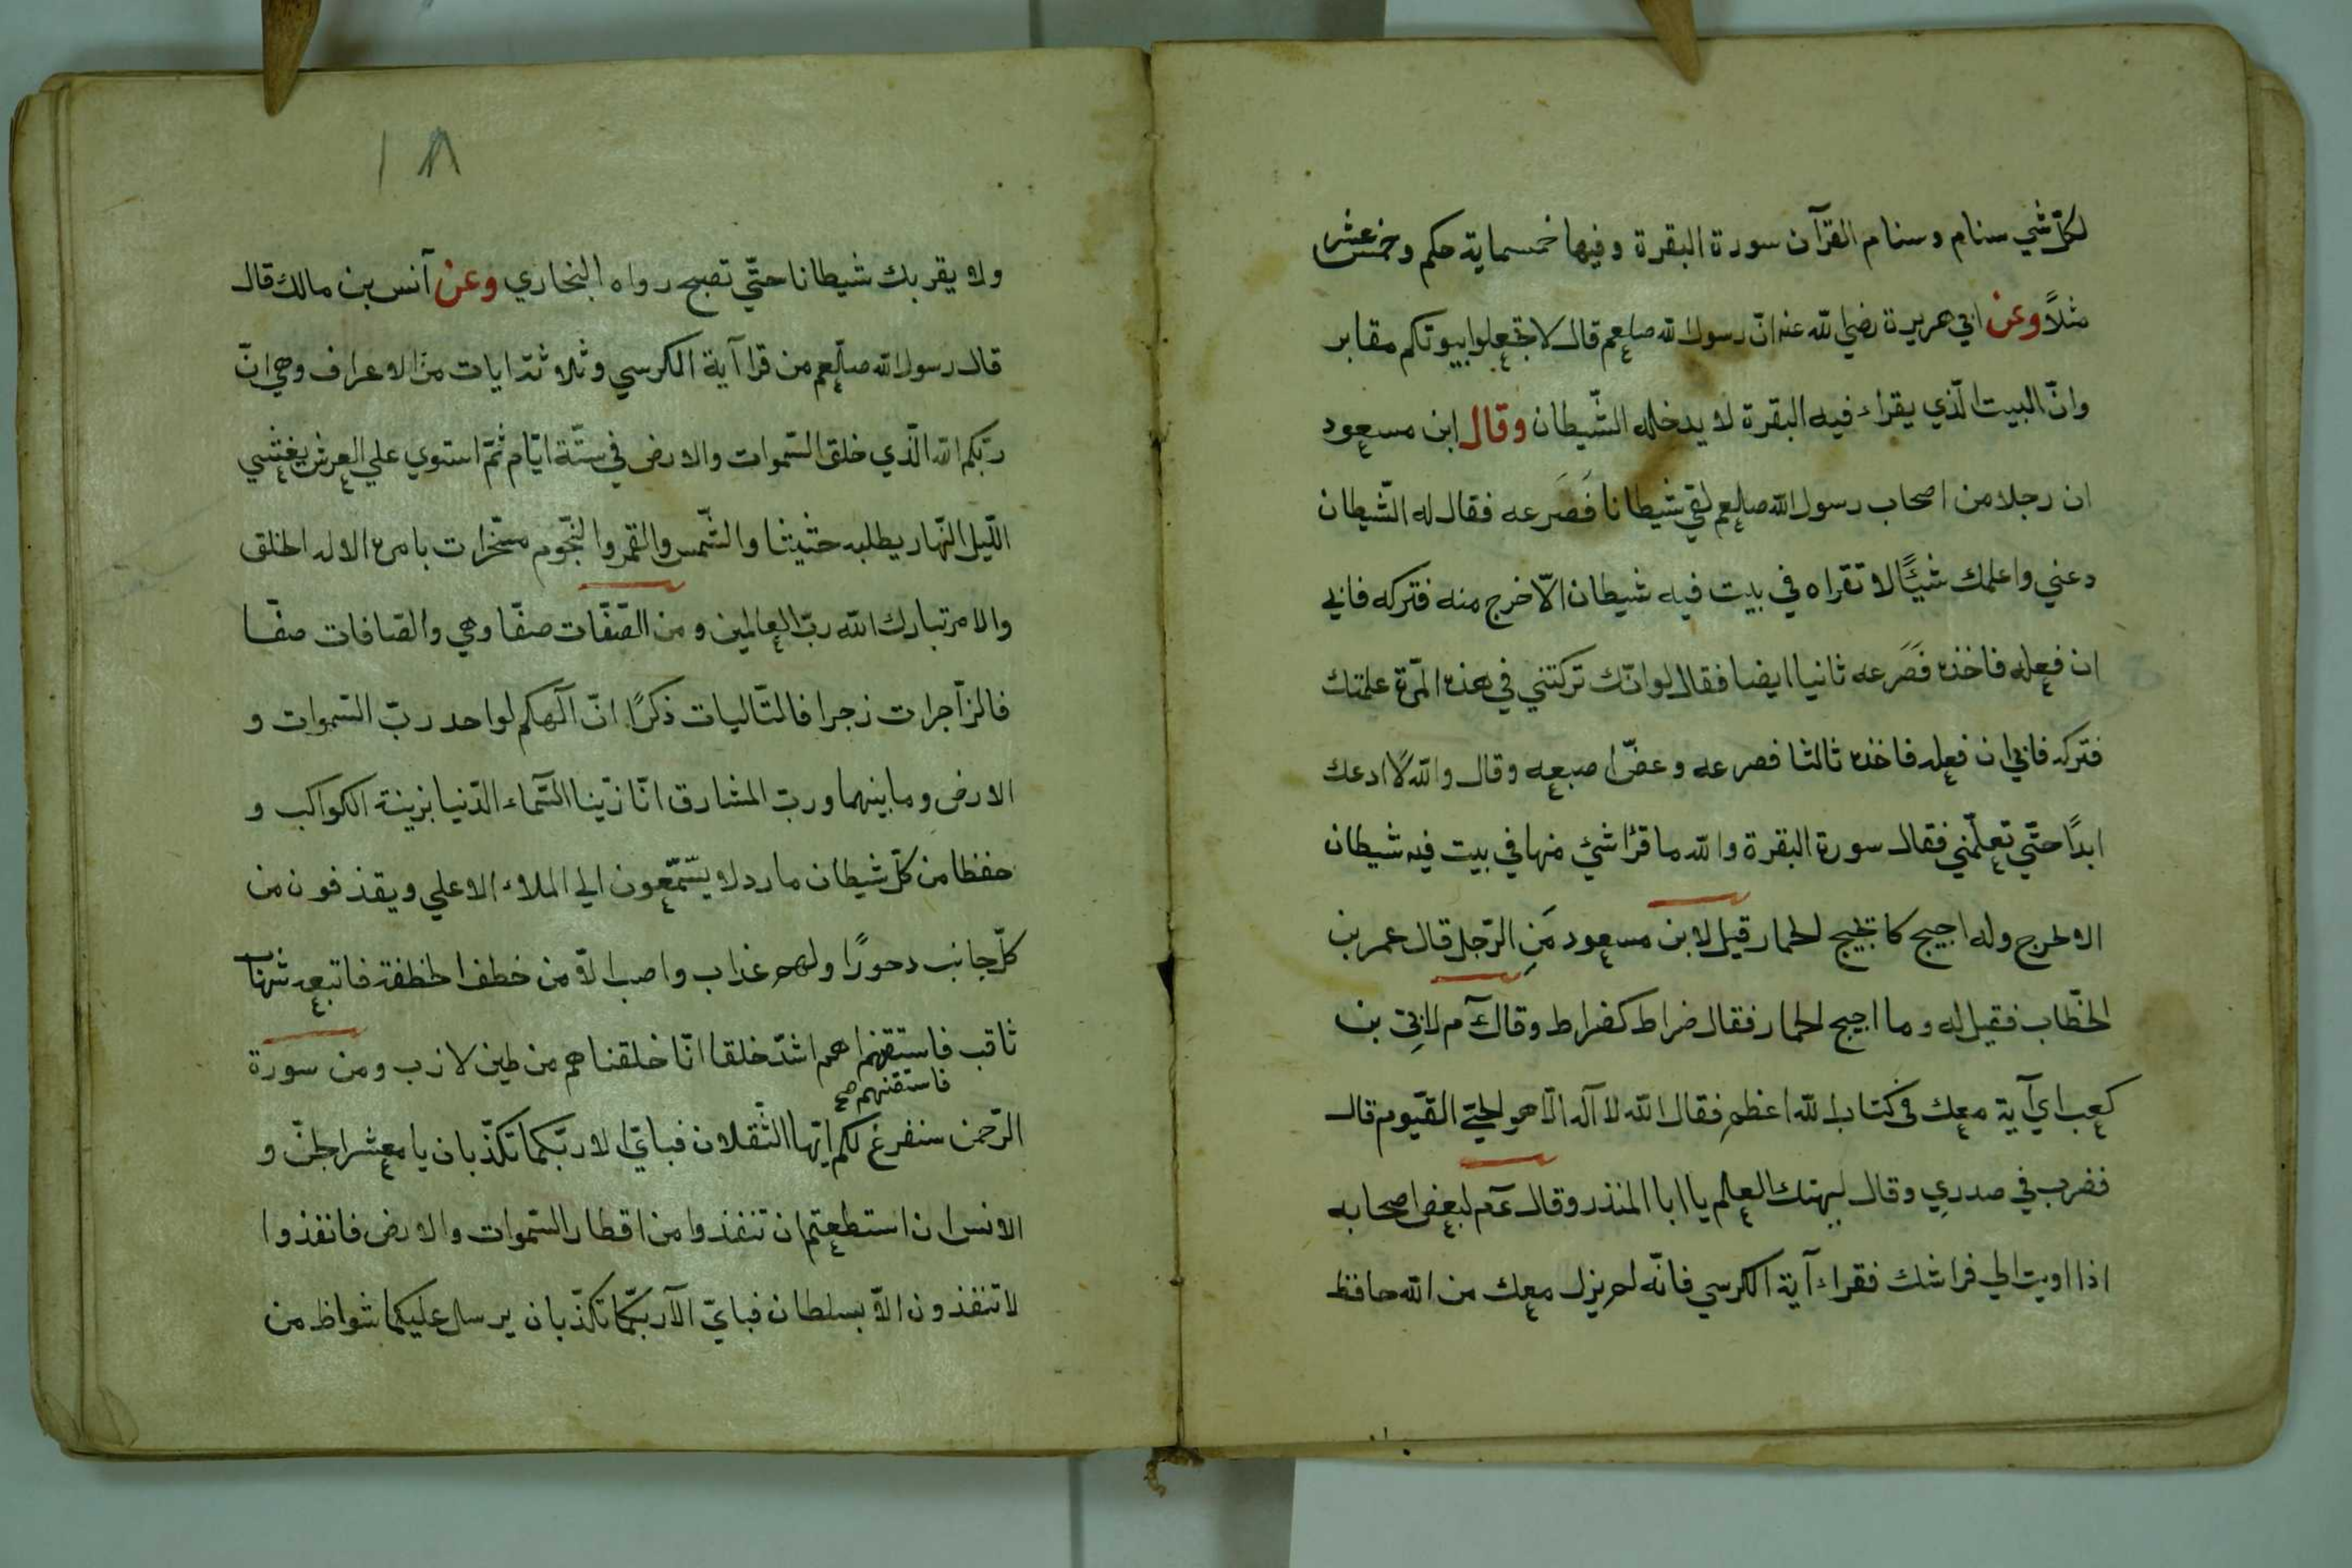 لكلّ شي سنام وسنام القرآن سورة البقرة وفيها خمسماية حكم وخمس عشر
مثلاً وعن ابي هريرة رضي الله عنه انّ رسول الله صلعم قال لا تجعلوا بيوتكم مقابر
وانّ البيت الّذي يقراء فيه البقرة لا يدخله الشّيطان وقال ابن مسعود
ان رجلا من اصحاب رسول الله صلعم لقي شيطانا فَصَرعه فقال له الشّيطان
دعني واعلمك شيئًا لا تقراه في بيت فيه شيطان الّا خرج منه فتركه فابي
ان فعله فاخذه فَصَرعه ثانيا ايضا فقال لو انّك تركتني في هذه المرّة علمتك
فتركه فابي ان فعله فاخذه ثالثا فصرعه وعضّ اصبعه وقال والله لا ادعك
ابدًا حتّي تعلّمني فقال سورة البقرة والله ما قرُا شئ منها في بيت فيه شيطان
الا خرج وله اجيج كاجيج الحمار قيل لابن مسعود مَنِ الرّجل قال عمر بن
الخطّاب فقيل له وما اجيج الحمار فقال ضراط كضراط وقال م لابيّ بن
كعب اي آية معك في كتاب الله اعظم فقال الله لا اله الّا هو الحيّ القيّوم قال
فضرب في صدرِي وقال ليهنك العلم يا ابا المنذر وقال عم لبعض اصحابه
اذا اويت الي فراشك فقراء آية الكرسي فانّه لم يزل معك من الله حافظ
١٨
ولا يقربك شيطانا حتّي تصبح رواه البخاري وعن آنس بن مالك قال
قال رسول الله صلّعم من قرا آية الكرسي وثلاثة ايات من الاعراف وهي انّ
ربّكم الله الّذي خلق السّموات والارض في ستّة ايّام ثمّ استوي علي العرش يغشي
اللّيل النّهار يطلبه حثيثا والشّمس والقمر والنّجوم مسّخرات بامره الا له الخلق
والامر تبارك الله ربّ العالمين ومن الصّفّات صفّا وهي والصّافات صفّا
فالزّاجرات زجرا فالتّاليات ذكرًا انّ آلهكم لواحد ربّ السّموات و
الارض وما بينهما وربّ المشارق انّا زيّنا السّماء الدّنيا بزينة الكواكب و
حفظا من كلّ شيطان مارد لا يسّمّعون الي الملاء الاعلي ويقذفون من
كلّ جانب دحورًا ولهم عذاب واصب الّا من خطف الخطفة فاتبعه شهاب
ثاقب فاستقهم اهم اشدّ خلقا انّا خلقناهم من طين لازب ومن سورة
فاستفتهم صح
الرّحمن سنفرغ لكم ايّها الثّقلان فبايّ الا ربّكما تكذّبان يا معشر الجنّ و
الانس ان استطعتم ان تنفذوا من اقطار السّموات والارض فانفذوا
لا تنفذون الّا بسلطان فبايّ الآ ربّكما تكذّبان يرسل عليكما شواظ من